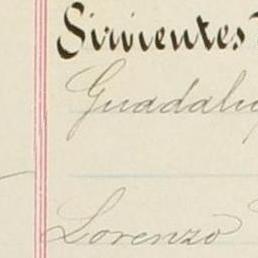 Sirvientes
Guadalup
Lorenzo